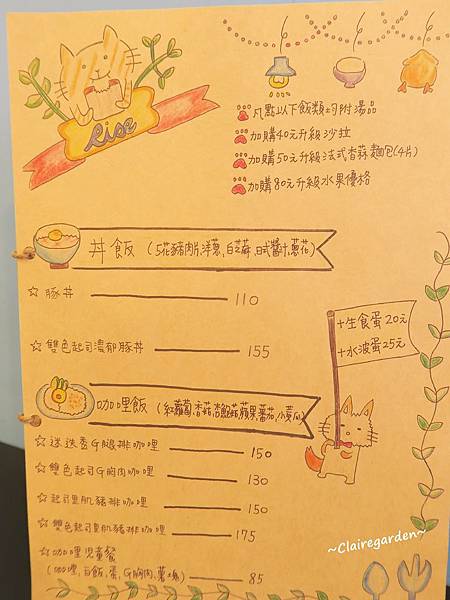 Rise
凡點以下飯類均附湯品
加購40元升級沙拉
加購50元升級法式香蒜麵包(4片)
加購80元升級水果優格
丼飯(5花豬肉片,洋蔥,白芝麻,日式醬汁,蔥花)
☆豚丼 110
☆雙色起司濃郁豚丼 155
+生食蛋20元
+水波蛋25元
咖哩飯(紅蘿蔔,香菇,杏鮑菇,蘋果,蕃茄,小黃瓜)
☆迷迭香G腿排咖哩 150
☆雙色起司G胸肉咖哩 130
☆起司里肌豬排咖哩 150
☆雙色起司里肌豬排咖哩 175
☆咖哩兒童餐
(咖哩,白飯,蛋,G胸肉,薯塊) 85
~Clairegarden~